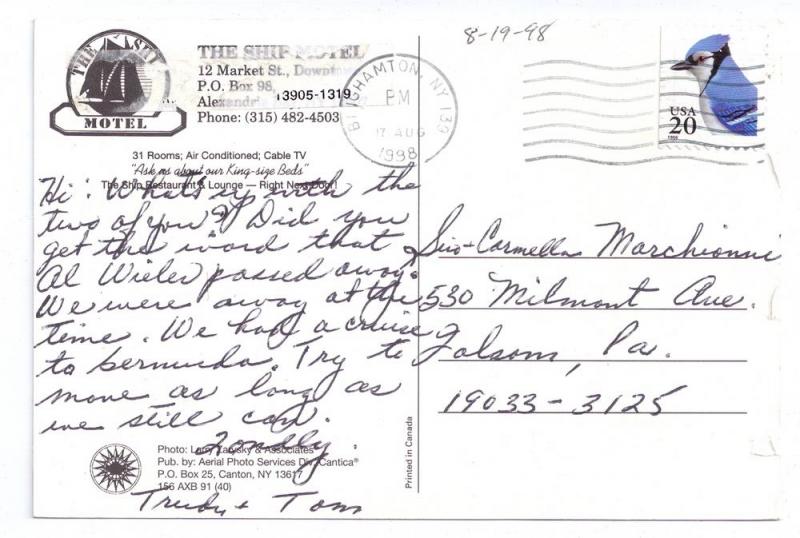 8-19-98
THE SHIP
MOTEL
THE SHIP MOTEL
12 Market St., Downtown
P.O. Box 98,
Alexandria
13905-1319
Phone: (315) 482-4503
BINGHAMTON, NY 139
PM
17 AUG
1998
USA
20
1996
31 Rooms; Air Conditioned; Cable TV
"Ask us about our King-size Beds"
The Ship Restaurant & Lounge — Right Next Door!
Hi! What's up with the
two of you? Did you
get the word that
Al Wieler passed away?
We were away at the
time. We had a cruise
to bermuda. Try to
move as long as
we still can.
Fondly,
Trudy + Tom
Siro & Carmella Marchionni
530 Milmont Ave.
Folsom, Pa.
19033-3125
Photo: Larry & Associates
Pub. by: Aerial Photo Services Div. "Cantica"
P.O. Box 25, Canton, NY 13617
156 AXB 91 (40)
Printed in Canada